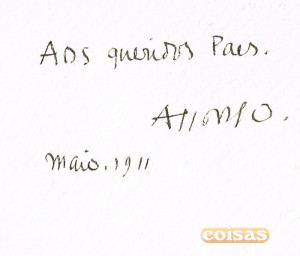 Aos queridos Paes.
Affonso.
Maio. 1911
coisas